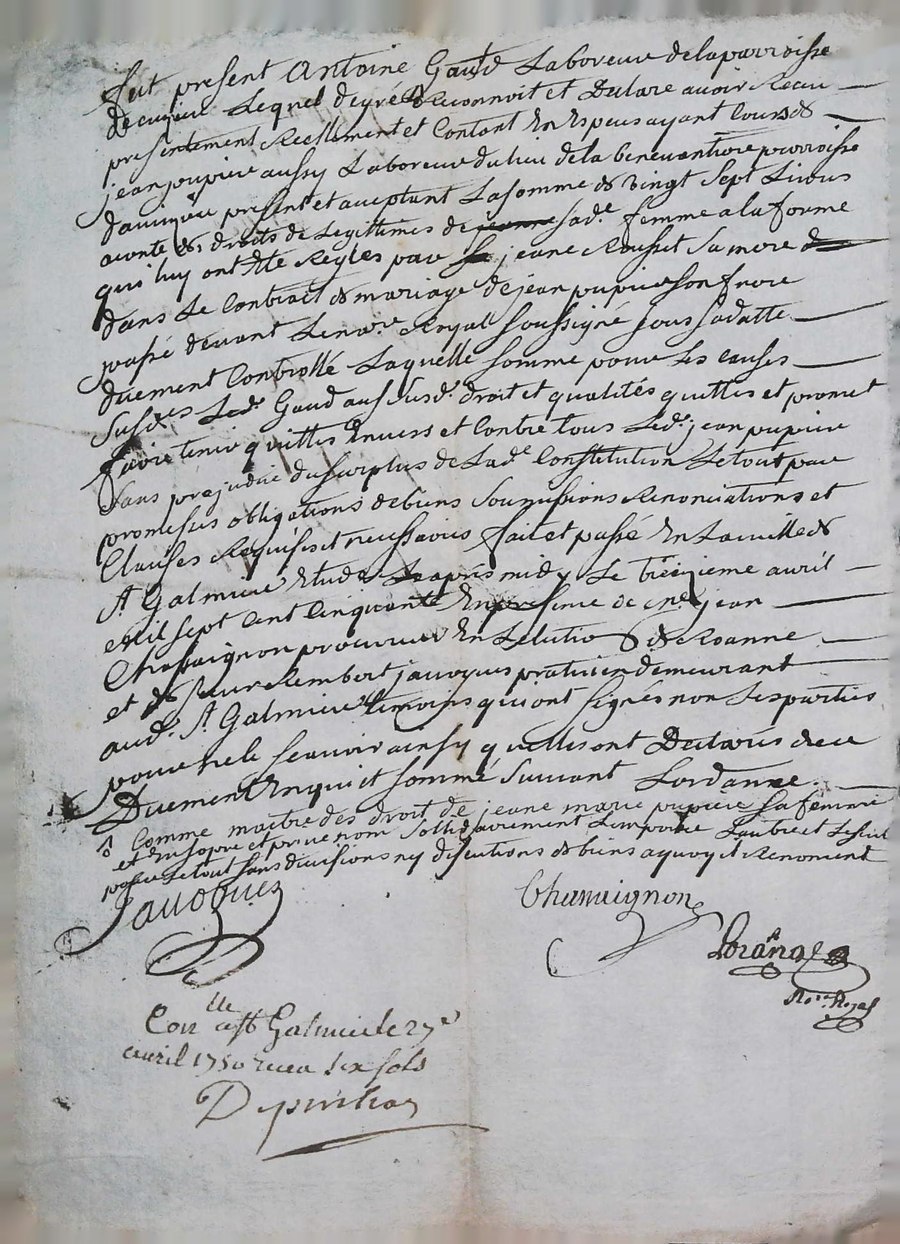 fut present Antoine Gaud Laboreur de la parroisse
de cuzieu Lequel de gré Reconnoit et Declare avoir Receu
presentement Reellement et Contant En Especes ayant Cours de
jean pupier aussy Laboreur du lieu de la benevantiere parroisse
present et aceptant La somme de vingt Sept Livres
aconte des droits de Legittimes de sa de. femme a la forme
qui luy ont ete Regles par jeane Rousset Sa mere
dans Le Contract de mariage de jean pupier Son frere
passé devant Le nore. Royal Soussigné sous Sa datte
duement Controllé Laquelle Somme pour Les causes
Susdes Led. Gaud ausd susd. droit et qualités quittes et promet
faire tenir quittes Envers et Contre tous Led. jean pupier
Sans prejudice du surplus de Lade. Constitution Le tout par
promesses obligations de biens Soumissions Renonciations et
Clauses Requises et necessaires fait et passé En La ville de
St. Galmier Etude Le apres midy Le treizieme avril
Mil sept cent Cinquante En presence de me. jean
Chavaignon procureur En Lelection de Roanne
et de Sieur Rembert jacques praticien demeurant
aud. St. Galmier temoins qui ont signés non Les parties
pour ne le Scavoir ainsy quelles ont Declarés de ce
Duement Enquis et sommé Suivant Lordanne.
Comme maitre des droit de jeane marie pupier sa femme
et En sopre et privé nom Sollidairement Lun pour Lautre et Le seul
pour Le tout sans divisions ny discutions de biens a quoy il Renoncent
Jacques
Chavaignon
Nore. Royal
Conlle a St. Galmier le 27e
avril 1750 receu six sols